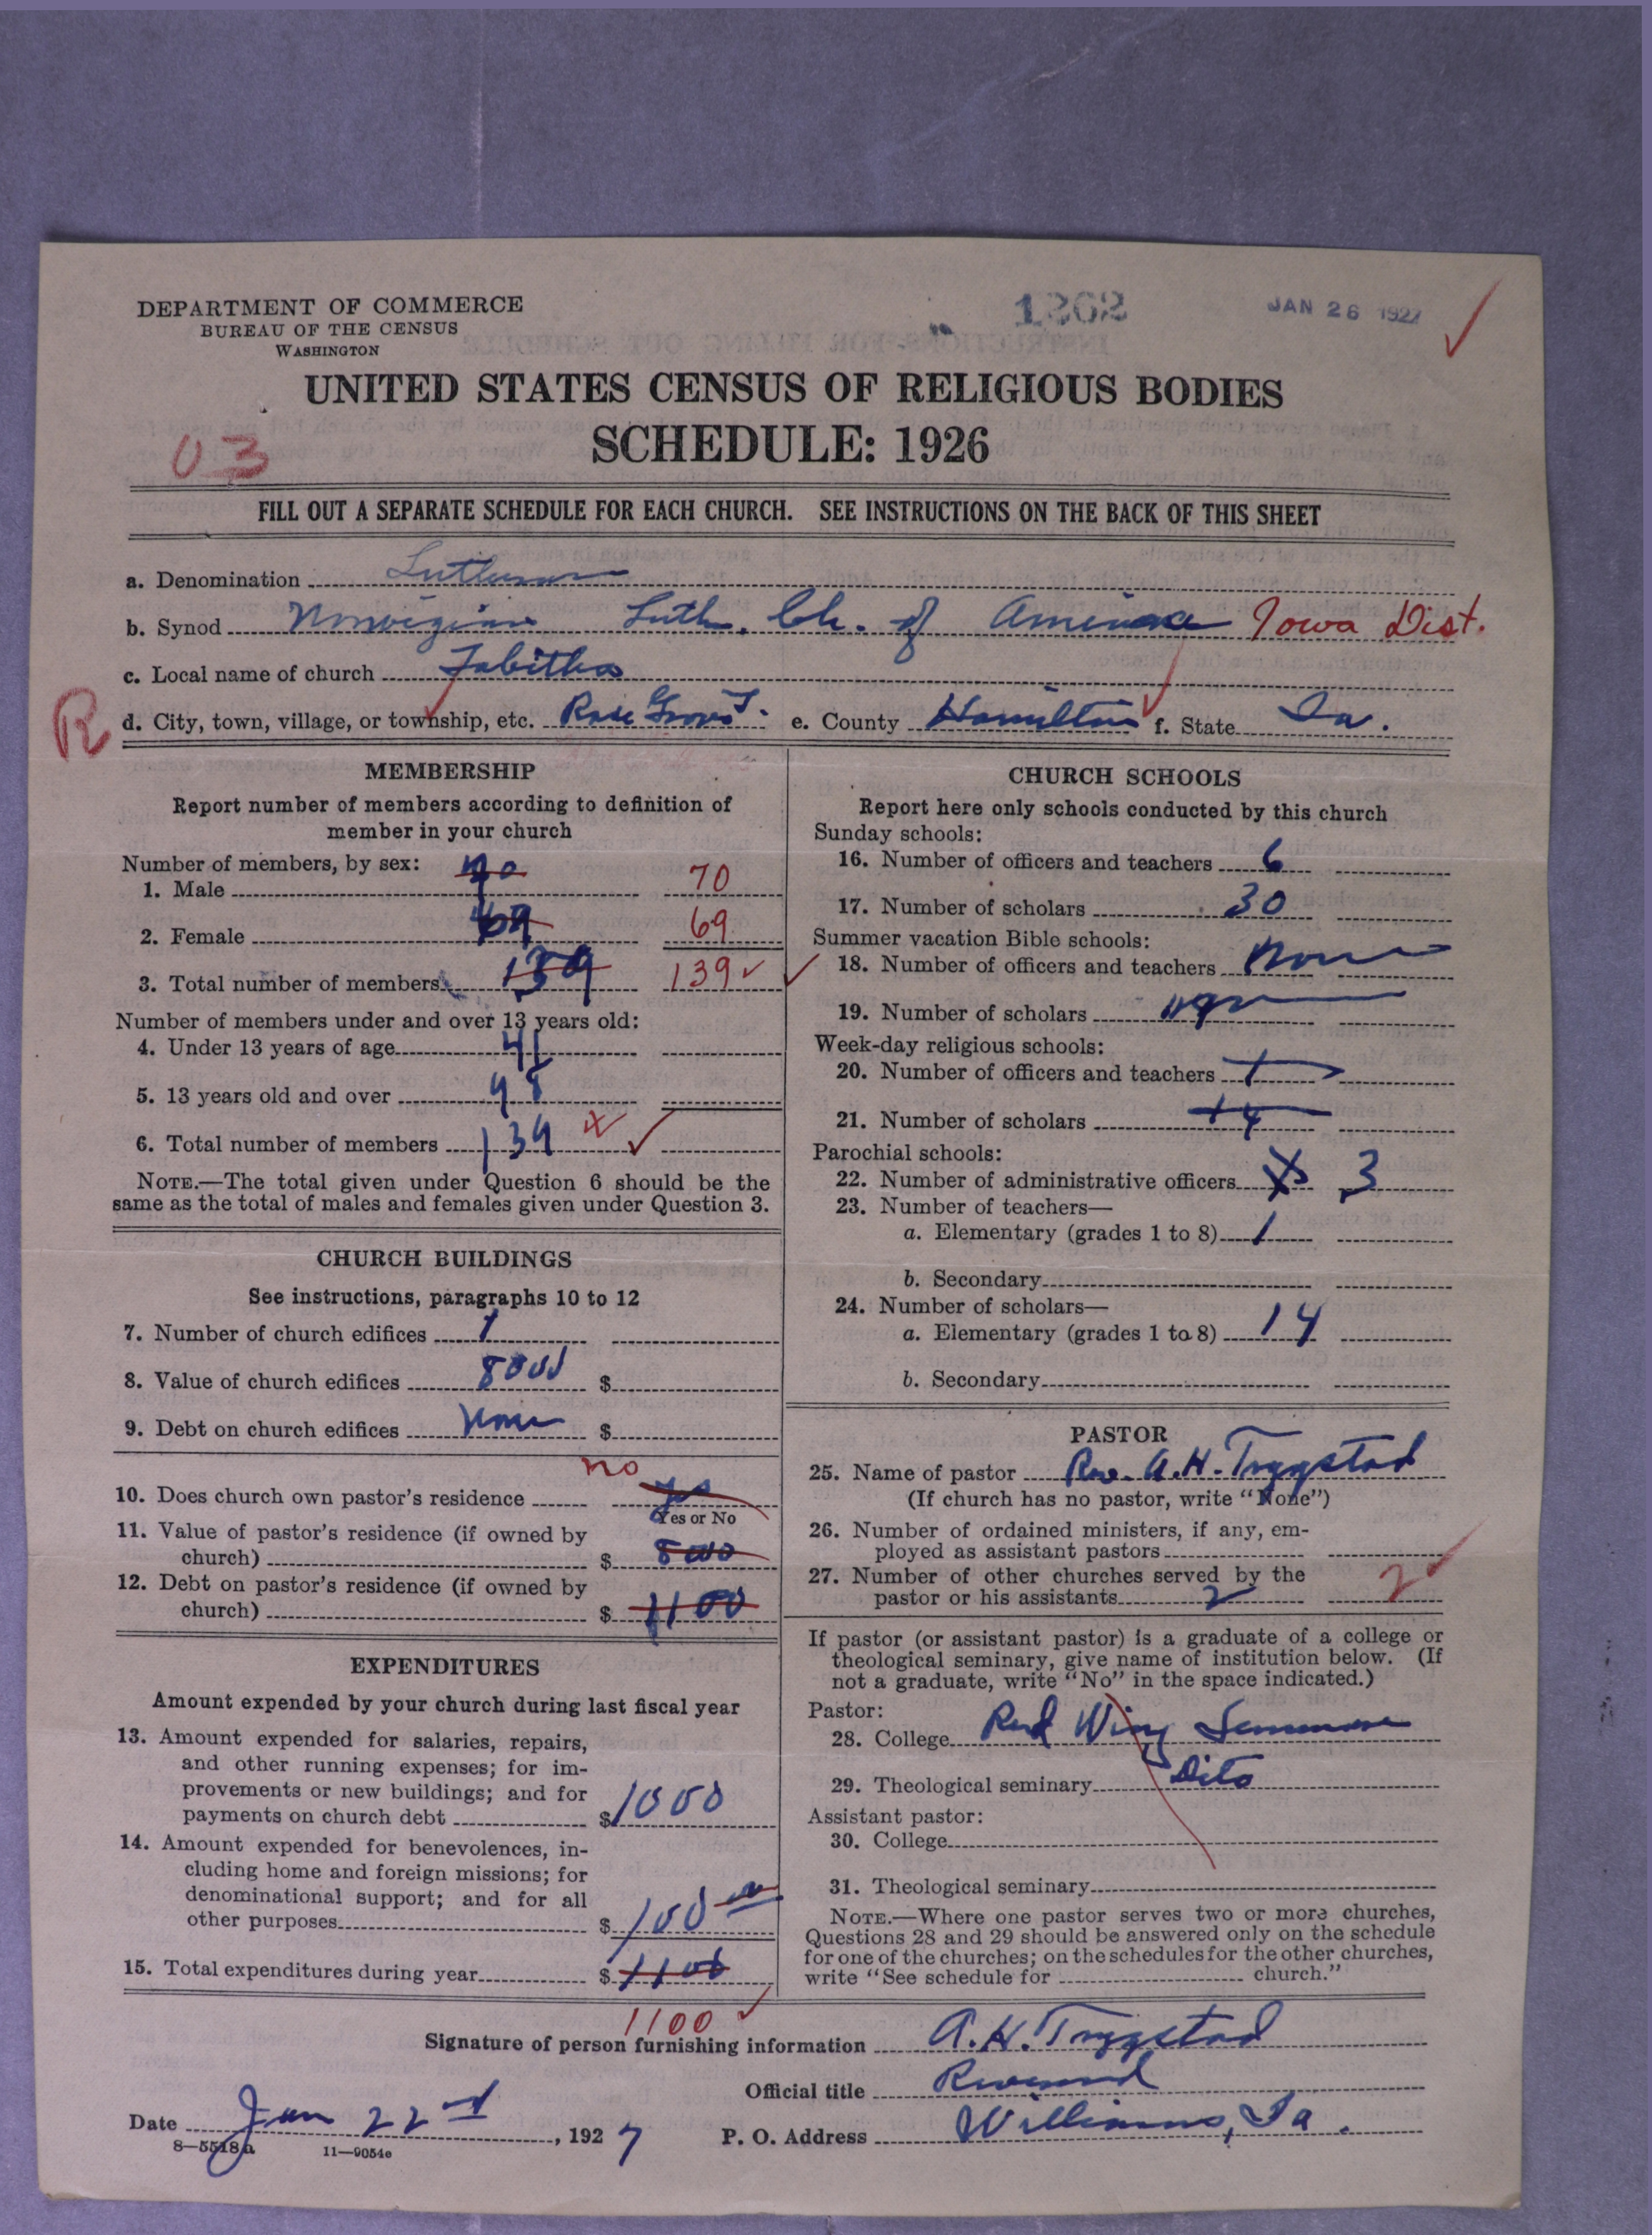 DEPARTMENT OF COMMERCE
BUREAU OF THE CENSUS
WASHINGTON
1262
JAN 26 1927
UNITED STATES CENSUS OF RELIGIOUS BODIES
SCHEDULE: 1926
03
FILL OUT A SEPARATE SCHEDULE FOR EACH CHURCH. SEE INSTRUCTIONS ON THE BACK OF THIS SHEET
a. Denomination Lutheran
b. Synod Norwegian Luth. Ch. of America Iowa Dist.
c. Local name of church Tabitha
R d. City, town, village, or township, etc. Rose Grove T. e. County Hamilton f. State Ia.
MEMBERSHIP
Report number of members according to definition of
member in your church
Number of members, by sex:
1. Male 70 70
2. Female 69 69
3. Total number of members 139 139
Number of members under and over 13 years old:
4. Under 13 years of age 41
5. 13 years old and over 98
6. Total number of members 139
NOTE.—The total given under Question 6 should be the
same as the total of males and females given under Question 3.
CHURCH BUILDINGS
See instructions, paragraphs 10 to 12
7. Number of church edifices 1
8. Value of church edifices 8000 $
9. Debt on church edifices None $
no
10. Does church own pastor's residence yes
Yes or No
11. Value of pastor's residence (if owned by
church) $ 8000
12. Debt on pastor's residence (if owned by
church) $ 1100
EXPENDITURES
Amount expended by your church during last fiscal year
13. Amount expended for salaries, repairs,
and other running expenses; for im-
provements or new buildings; and for
payments on church debt $ 1000
14. Amount expended for benevolences, in-
cluding home and foreign missions; for
denominational support; and for all
other purposes $ 100
15. Total expenditures during year $ 1100
1100
CHURCH SCHOOLS
Report here only schools conducted by this church
Sunday schools:
16. Number of officers and teachers 6
17. Number of scholars 30
Summer vacation Bible schools:
18. Number of officers and teachers None
19. Number of scholars
Week-day religious schools:
20. Number of officers and teachers
21. Number of scholars
Parochial schools:
22. Number of administrative officers 3
23. Number of teachers—
a. Elementary (grades 1 to 8) 1
b. Secondary
24. Number of scholars—
a. Elementary (grades 1 to 8) 14
b. Secondary
PASTOR
25. Name of pastor Rev. A. H. Trygstad
(If church has no pastor, write "None")
26. Number of ordained ministers, if any, em-
ployed as assistant pastors
27. Number of other churches served by the
pastor or his assistants 2 2
If pastor (or assistant pastor) is a graduate of a college or
theological seminary, give name of institution below. (If
not a graduate, write "No" in the space indicated.)
Pastor:
28. College Red Wing
29. Theological seminary Dito
Assistant pastor:
30. College
31. Theological seminary
NOTE.—Where one pastor serves two or more churches,
Questions 28 and 29 should be answered only on the schedule
for one of the churches; on the schedules for the other churches,
write "See schedule for church."
Signature of person furnishing information A. H. Trygstad
Official title Reverend
Date Jan 22nd, 1927 P. O. Address Williams, Ia.
8—5518a 11—9054e